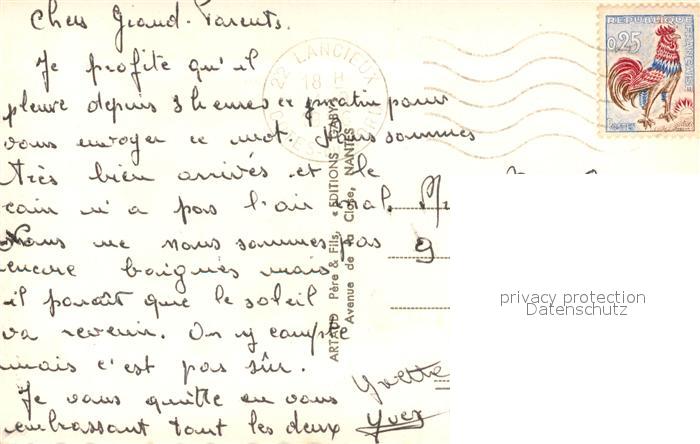 Chers Grand-Parents.
Je profite qu'il
pleure depuis 3 heures ce matin pour
vous envoyer ce mot. Nous sommes
très bien arrivés et le
coin n'a pas l'air mal.
Nous ne nous sommes pas
encore baignés mais
il paraît que le soleil
va revenir. On y compte
mais c'est pas sûr.
Je vous quitte en vous
embrassant tout les deux
Yvette
Yves
22 LANCIEUX
18 H
REPUBLIQUE FRANÇAISE
0,25
POSTES
ARTAUD Père & Fils, « EDITIONS GABY »
Avenue de la Close, NANTES
9
privacy protection
Datenschutz